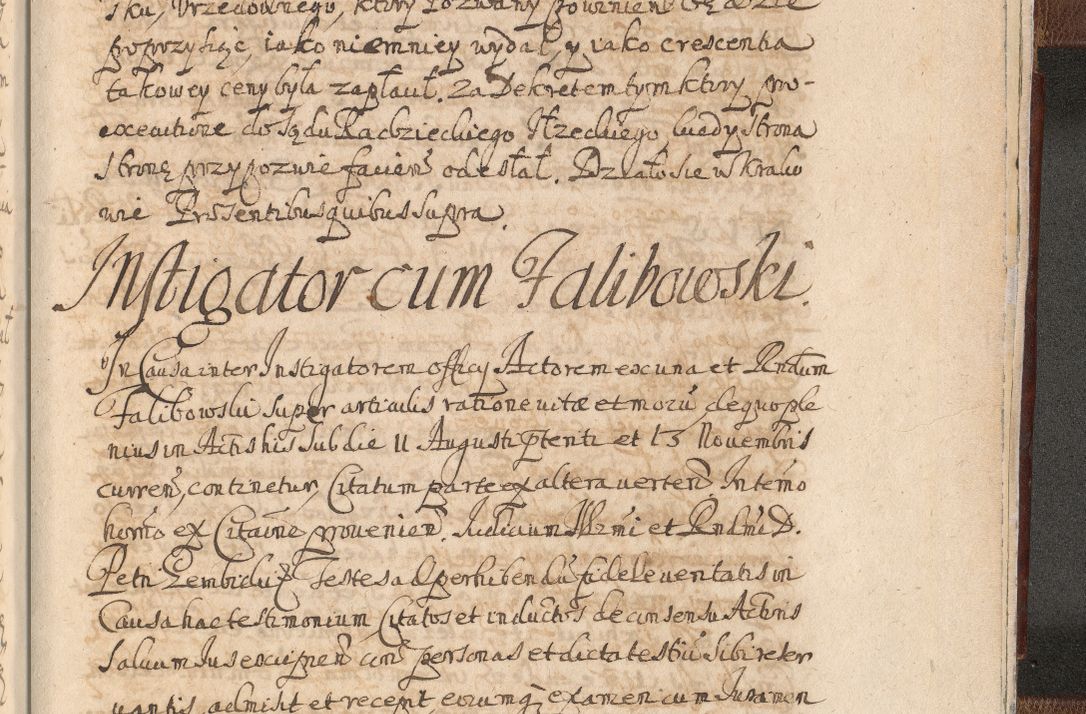 sku, Vrzedownego, ktory Pozwany powinien będzie
poprzysiądz, iako niemniey wydał, y iako crescentia
takowey ceny była zapłacił. Za Dekretem tym ktory pro
executione do Sądu Radzieckiego Rzeckiego, kiedy Strona
Stronę przypozwie faciem odesłał. Działo sie w Krako
wie Pręsentibus quibus supra.
Instigator cum Falibowski.
In Causa inter Instigatorem officij Actorem ex una et Rndum
Falibowski super articulis ratione vitæ et morũ de quo ple
nius in Actis his sub die 11 Augusti ptenti et 15 Novembris
curren, continetur, Citatum parte ex altera verten. In termo
horno ex Citaõne provenien. Iudicium Illrmi et Rndmi D.
Petri Gembicki Testes ad perhibendũ fidele veritatis in
Causa hac testimonium Citatos et inductos de consensu Actoris
saluum Ius excipien con personas et dicta testiũ sibi reser
vantis admisit et recepit, eorumq examen cum Iuramen